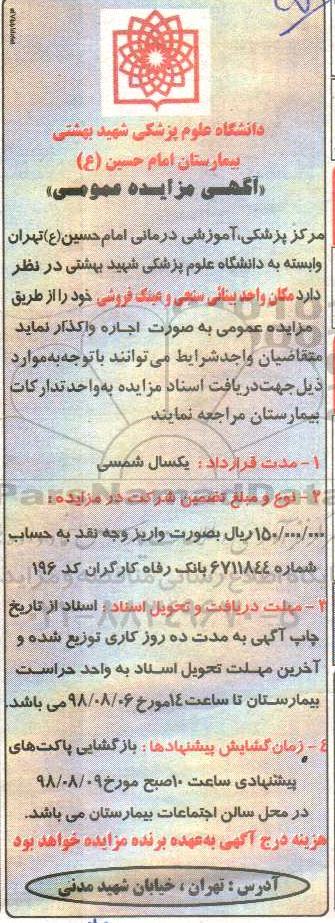 دانشگاه علوم پزشکی شهید بهشتی
بیمارستان امام حسین (ع)
«آگهی مزایده عمومی»
مرکز پزشکی،آموزشی درمانی امام حسین(ع)تهران
وابسته به دانشگاه علوم پزشکی شهید بهشتی در نظر
دارد مکان واحد بینائی سنجی و عینک فروشی خود را از طریق
مزایده عمومی به صورت اجاره واگذار نماید
متقاضیان واجدشرایط می توانند باتوجه به موارد
ذیل جهت دریافت اسناد مزایده به واحد تدارکات
بیمارستان مراجعه نمایند
۱- مدت قرارداد : یکسال شمسی
۲- نوع و مبلغ تضمین شرکت در مزایده :
۱۵۰/۰۰۰/۰۰۰ریال بصورت واریز وجه نقد به حساب
شماره ۶۷۱۱۸۴۴ بانک رفاه کارگران کد ۱۹۶
۳- مهلت دریافت و تحویل اسناد : اسناد از تاریخ
چاپ آگهی به مدت ده روز کاری توزیع شده و
آخرین مهلت تحویل اسناد به واحد حراست
بیمارستان تا ساعت ۱۴مورخ ۹۸/۰۸/۰۶ می باشد.
٤- زمان گشایش پیشنهادها : بازگشایی پاکت های
پیشنهادی ساعت ۱۰صبح مورخ ۹۸/۰۸/۰۹
در محل سالن اجتماعات بیمارستان می باشد.
هزینه درج آگهی به عهده برنده مزایده خواهد بود
آدرس : تهران ، خیابان شهید مدنی